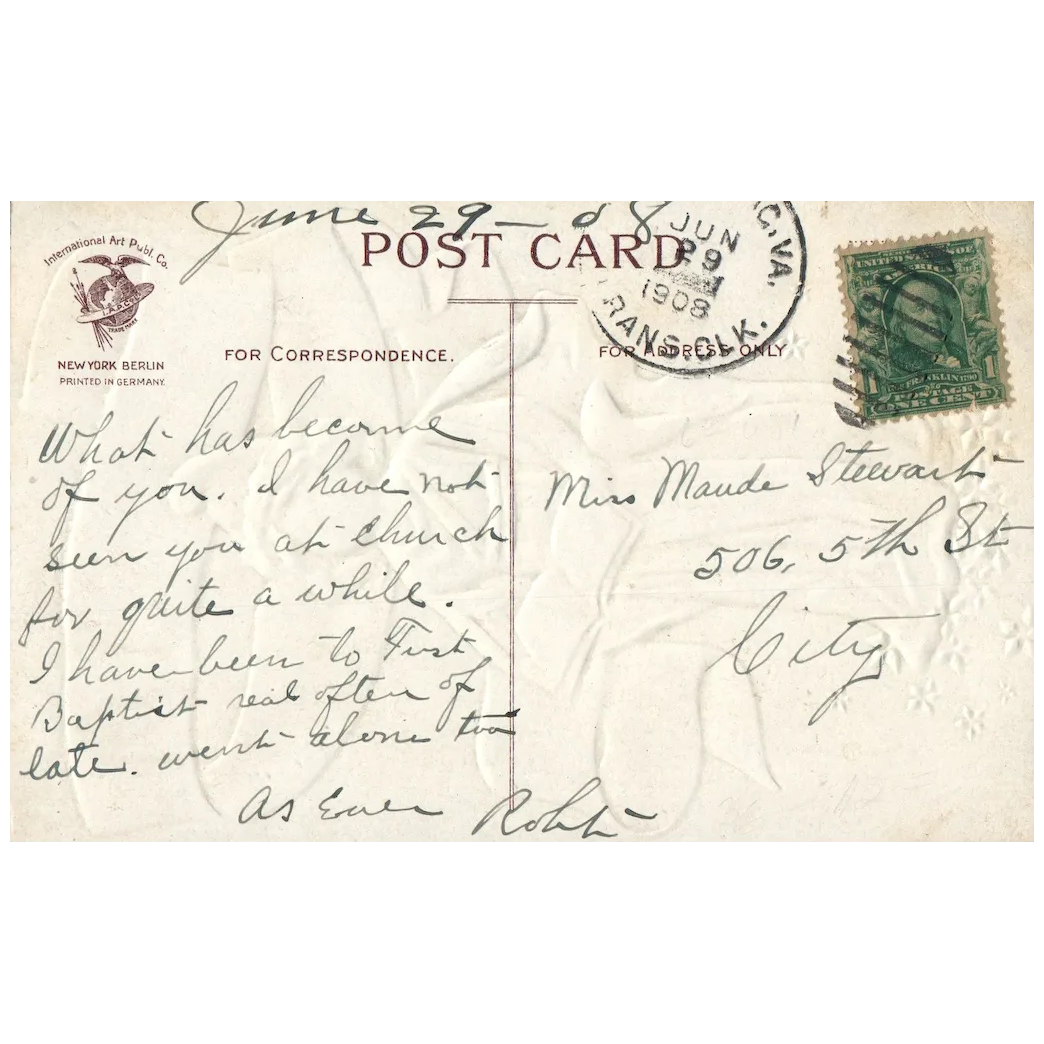 June 29 - 08
POST CARD
International Art Publ. Co.
I.A.P.C.
TRADE MARK
NEW YORK BERLIN
PRINTED IN GERMANY.
FOR CORRESPONDENCE.
FOR ADDRESS ONLY
C. VA.
JUN
29
1908
TRANS. CLK.
UNITED STATES OF
AMERICA
FRANKLIN 1790
1 POSTAGE 1
ONE CENT
What has become
of you. I have not
seen you at church
for quite a while.
I have been to First
Baptist real often of
late. went alone too
As Ever Robt
Miss Maude Stewart
506, 5th St
City